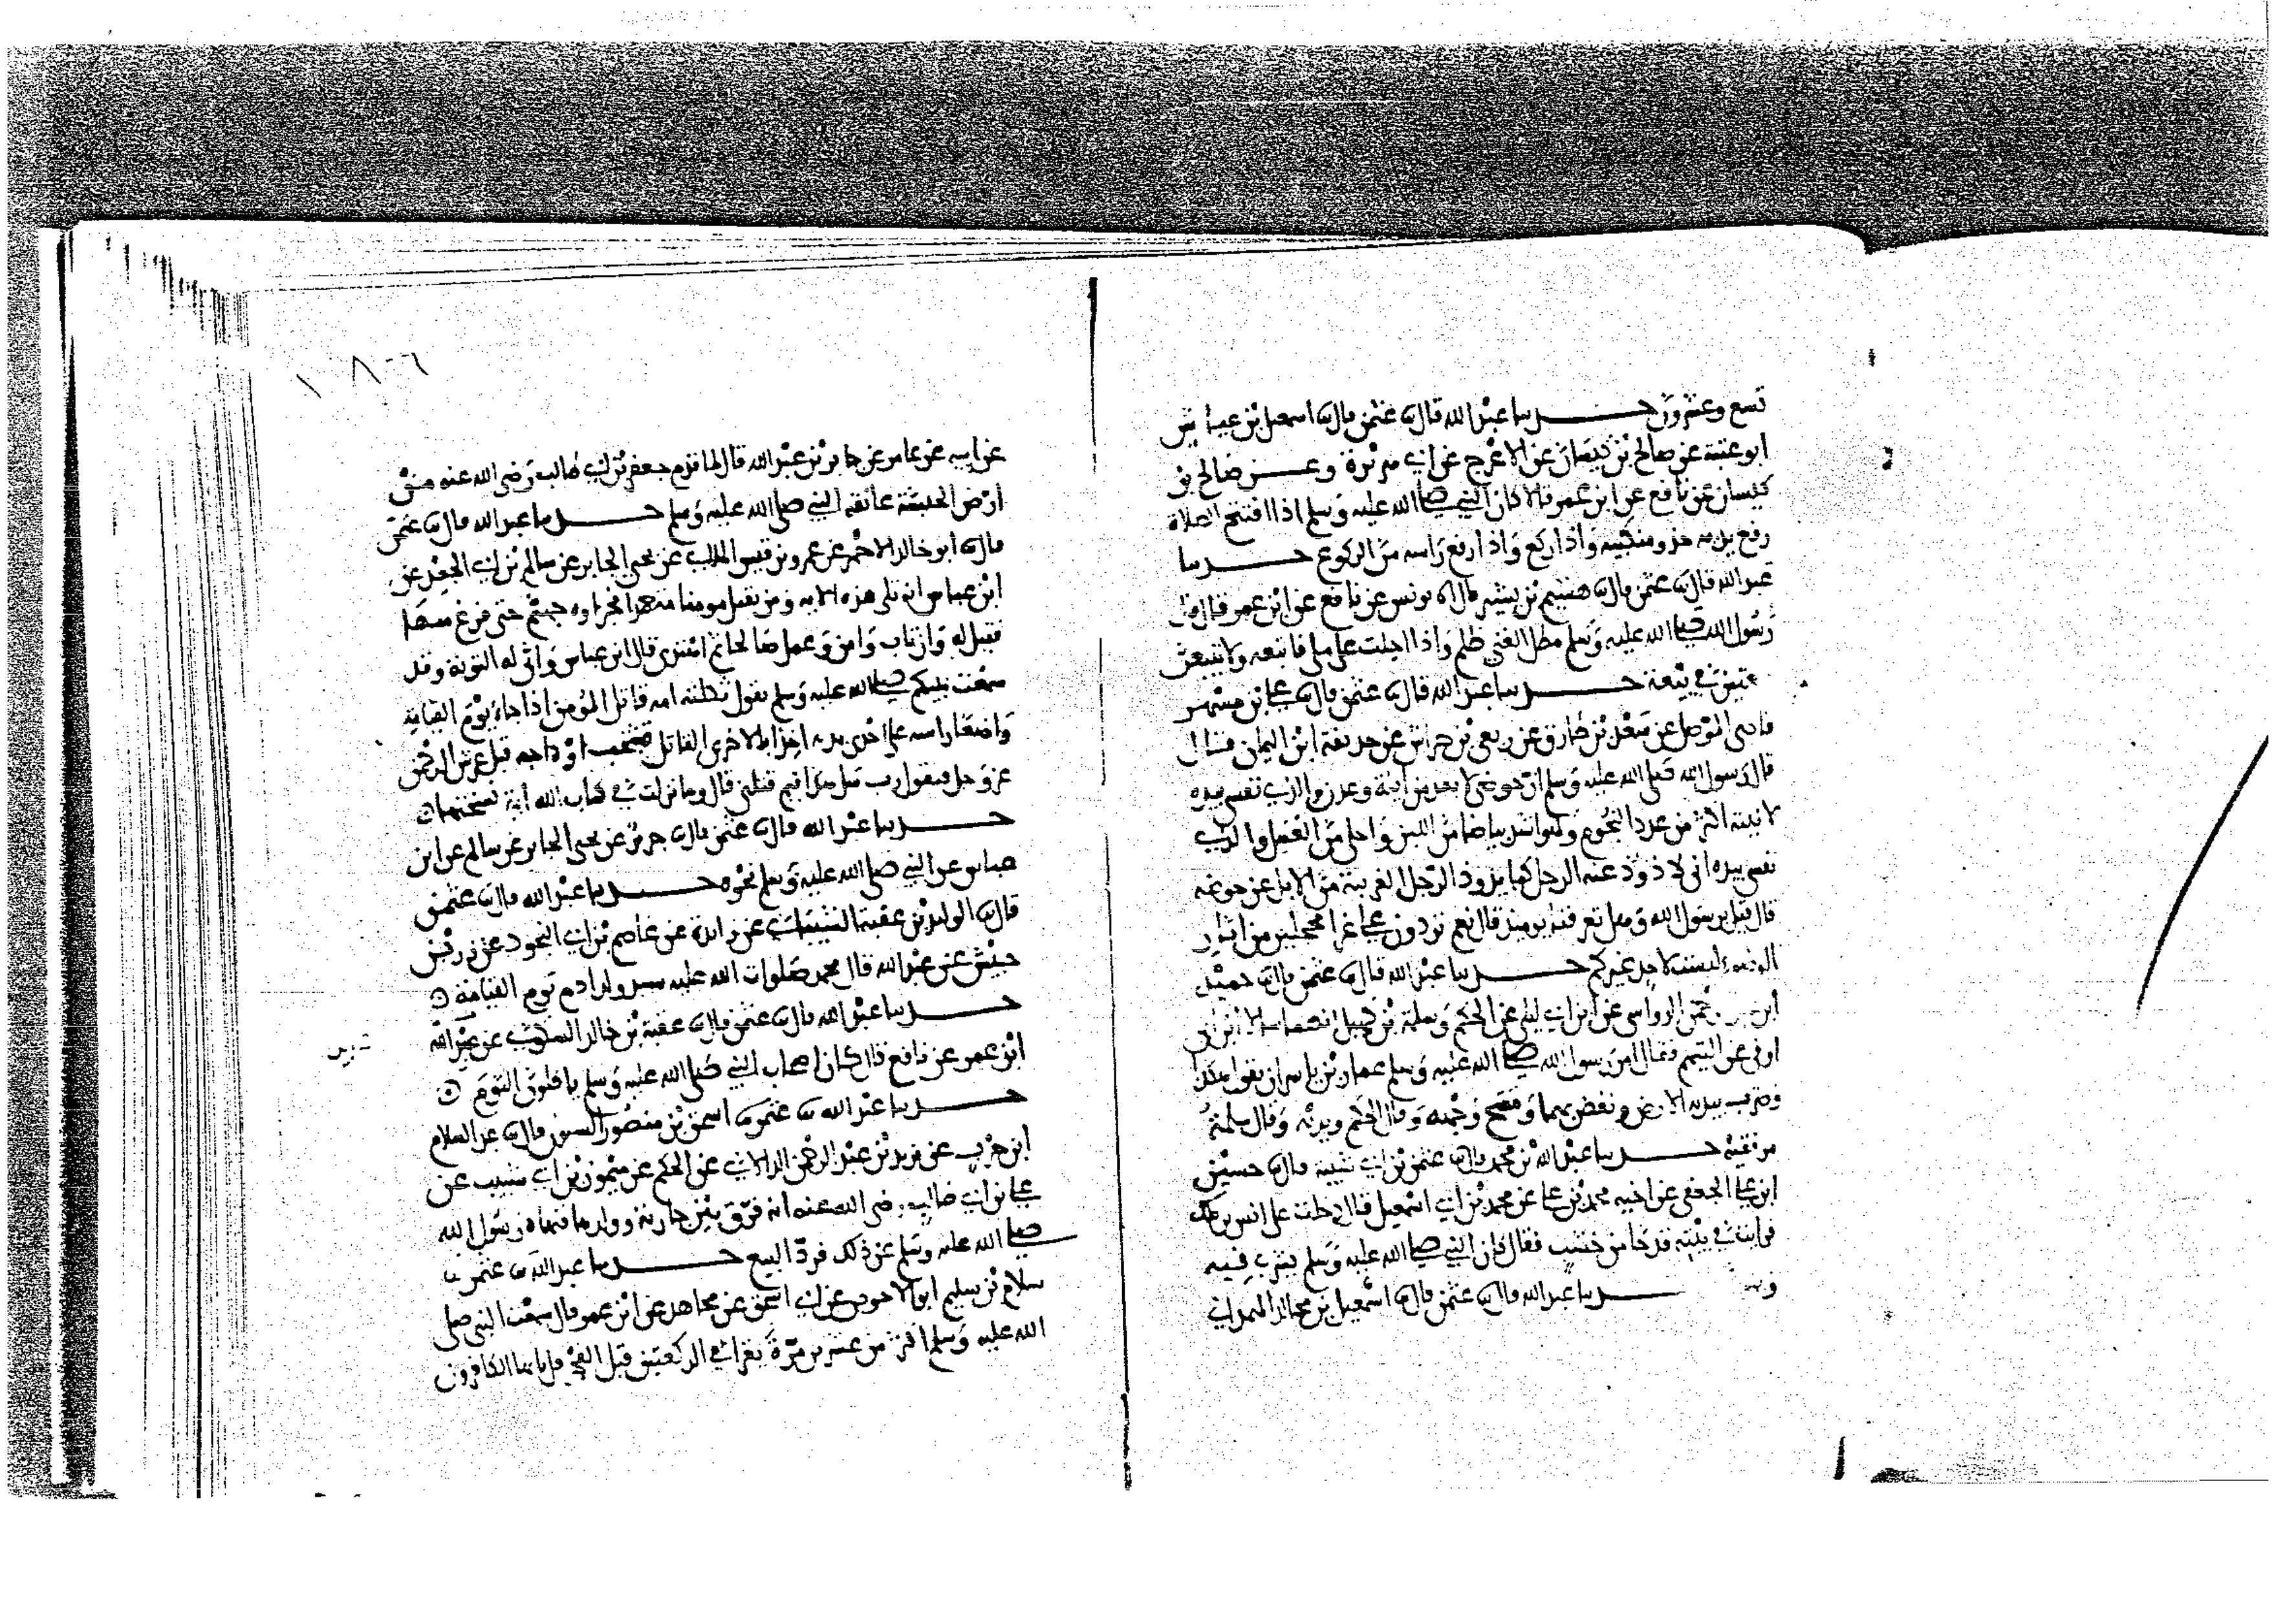 تسع وعشرون حدثنا عبد الله قال نا عثمن قال نا اسمعيل بن عياش
ابو عتبة عن صالح بن كيسان عن الاعرج عن ابي هريرة وعن صالح بن
كيسان عن نافع عن ابن عمر قالا كان النبي صلى الله عليه وسلم اذا افتتح الصلاة
رفع يديه حذو منكبيه واذا ركع واذا رفع راسه من الركوع حدثنا
عبد الله قال نا عثمن قال نا هشيم بن بشير قال نا يونس عن نافع عن ابن عمر قال قال
رسول الله صلى الله عليه وسلم مطل الغني ظلم واذا احلت على ملي فاتبعه ولا
بيعتين في بيعة حدثنا عبد الله قال نا عثمن قال نا علي بن مسهر
قاضي الموصل عن سعد بن طارق عن ربعي بن حراش عن حذيفة ابن اليمان قال
قال رسول الله صلى الله عليه وسلم ان حوضي لابعد من ايلة وعدن والذي نفسي بيده
لانيته اكثر من عدد النجوم ولهو اشد بياضا من اللبن واحلى من العسل والذي
نفسي بيده اني لاذود عنه الرجل كما يذود الرجل الغريبة من الابل عن حوضه
قال قيل يرسول الله وهل تعرفنا يومئذ قال نعم تردون علي غرا محجلين من اثار
الوضوء ليست لاحد غيركم حدثنا عبد الله قال نا عثمن قال نا حميد
ابن عبد الرحمن الرواسي عن ابن ابي ليلى عن الحكم وسلمة بن كهيل انهما سالا ابن ابي
اوفى عن التيمم فقال امر رسول الله صلى الله عليه وسلم عمار بن ياسر ان يقول هكذا
وضرب بيديه الارض ونفضهما ومسح وجهه وقال الحكم ويديه وقال سلمة
مرفقيه حدثنا عبد الله بن محمد قال نا عثمن بن ابي شيبة قال نا حسين
ابن علي الجعفي عن اخيه محمد بن علي عن محمد بن ابي اسمعيل قال دخلت على انس بن ملك
فرايت في بيته قدحا من خشب فقال كان النبي صلى الله عليه وسلم يشرب فيه
حدثنا عبد الله قال نا عثمن قال نا اسمعيل بن مجالد الهمداني
١٨٦
عن ابيه عن عامر عن جابر بن عبد الله قال لما قدم جعفر بن ابي طالب رضي الله عنه من
ارض الحبشة عانقه النبي صلى الله عليه وسلم حدثنا عبد الله قال نا عثمن
قال نا ابو خالد الاحمر عن عمرو بن قيس الملائي عن يحيى الجابر عن سالم بن ابي الجعد عن
ابن عباس انه تلى هذه الاية ومن يقتل مومنا متعمدا فجزاوه جهنم حتى فرغ منها
فقيل له وان تاب وامن وعمل صالحا ثم اهتدى قال ابن عباس وانى له التوبة وقد
سمعت نبيكم صلى الله عليه وسلم يقول ثكلته امه قاتل المؤمن اذا جاء يوم القيامة
واضعا راسه على احدى يديه اخذا بالاخرى القاتل تشخب اوداجه قبل عرش الرحمن
عز وجل فيقول رب سل هذا فيم قتلني قال وما نزلت في كتاب الله اية نسختها
حدثنا عبد الله قال نا عثمن قال نا جرير عن يحيى الجابر عن سالم عن ابن
عباس عن النبي صلى الله عليه وسلم نحوه حدثنا عبد الله قال نا عثمن
قال نا الوليد بن عقبة الشيباني عن زائدة عن عاصم بن ابي النجود عن زر بن
حبيش عن عبد الله قال محمد صلوات الله عليه سيد ولد ادم يوم القيامة
حدثنا عبد الله قال نا عثمن قال نا عقبة بن خالد السكوني عن عبيد الله
ابن عمر عن نافع قال كان اصحاب النبي صلى الله عليه وسلم ياكلون الثوم
حدثنا عبد الله نا عثمن نا اسحق بن منصور السلولي قال نا عبد السلام
ابن حرب عن يزيد بن عبد الرحمن الدالاني عن الحكم عن ميمون بن ابي شبيب عن
علي بن ابي طالب رضي الله عنه انه فرق بين جارية وولدها فنهاه رسول الله
صلى الله عليه وسلم عن ذلك فرد البيع حدثنا عبد الله نا عثمن نا
سلام بن سليم ابو الاحوص عن ابي اسحق عن مجاهد عن ابن عمر قال سمعت النبي صلى
الله عليه وسلم اكثر من عشرين مرة يقرا في الركعتين قبل الفجر قل يا ايها الكافرون